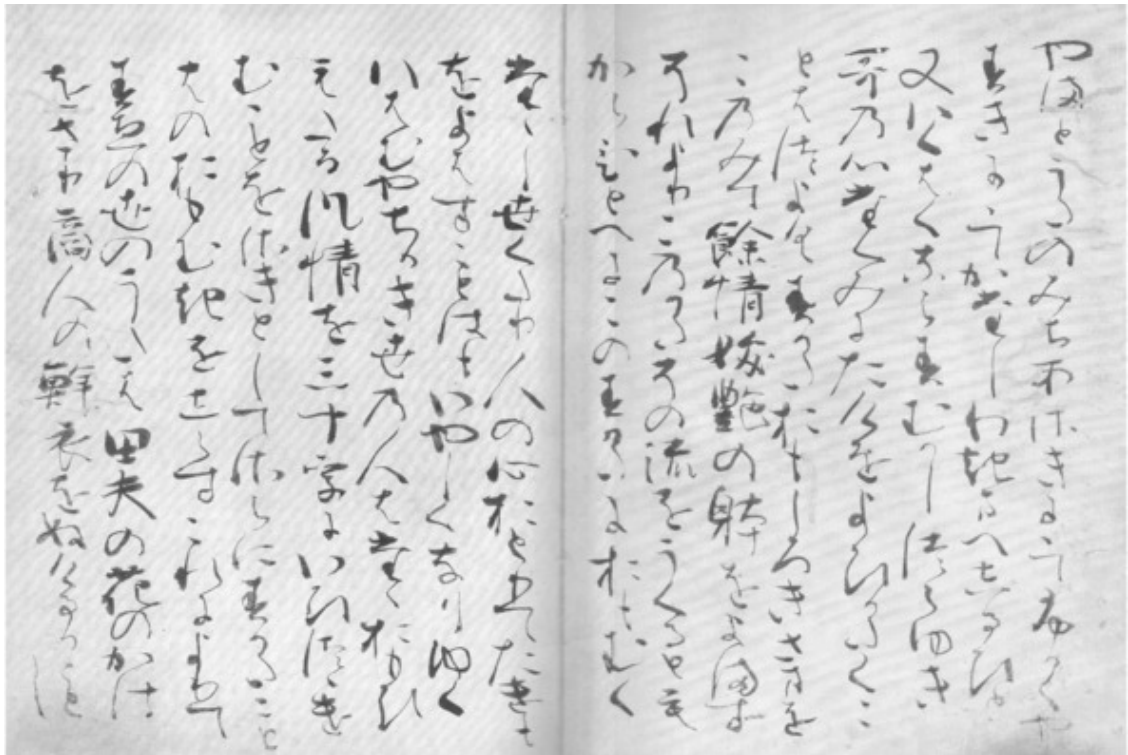 やまとうたのみちあさきにゝてふかくや
すきにゝてかたしわきまへしるひと
又いくはくならすむかしつらゆき
哥乃心たくみにたけをよひかたくこ
とはつよくすかたおもしろきさまを
このみて餘情妖艶の躰をよます
それよりこのかたその流をうくるとも
からひとへにこのすかたにおもむく
たゝし世くたり人の心おとりてたけも
をよはすことはもいやしくなりゆく
いはむやちかき世乃人はたゝおもひ
えたる風情を三十字にいひつゝけ
むことをさきとしてさらにすかたこと
はのおもむきをしらすこれによりて
すゑの世のうたは田夫の花のかけ
をさり商人の鮮衣をぬけるかことし